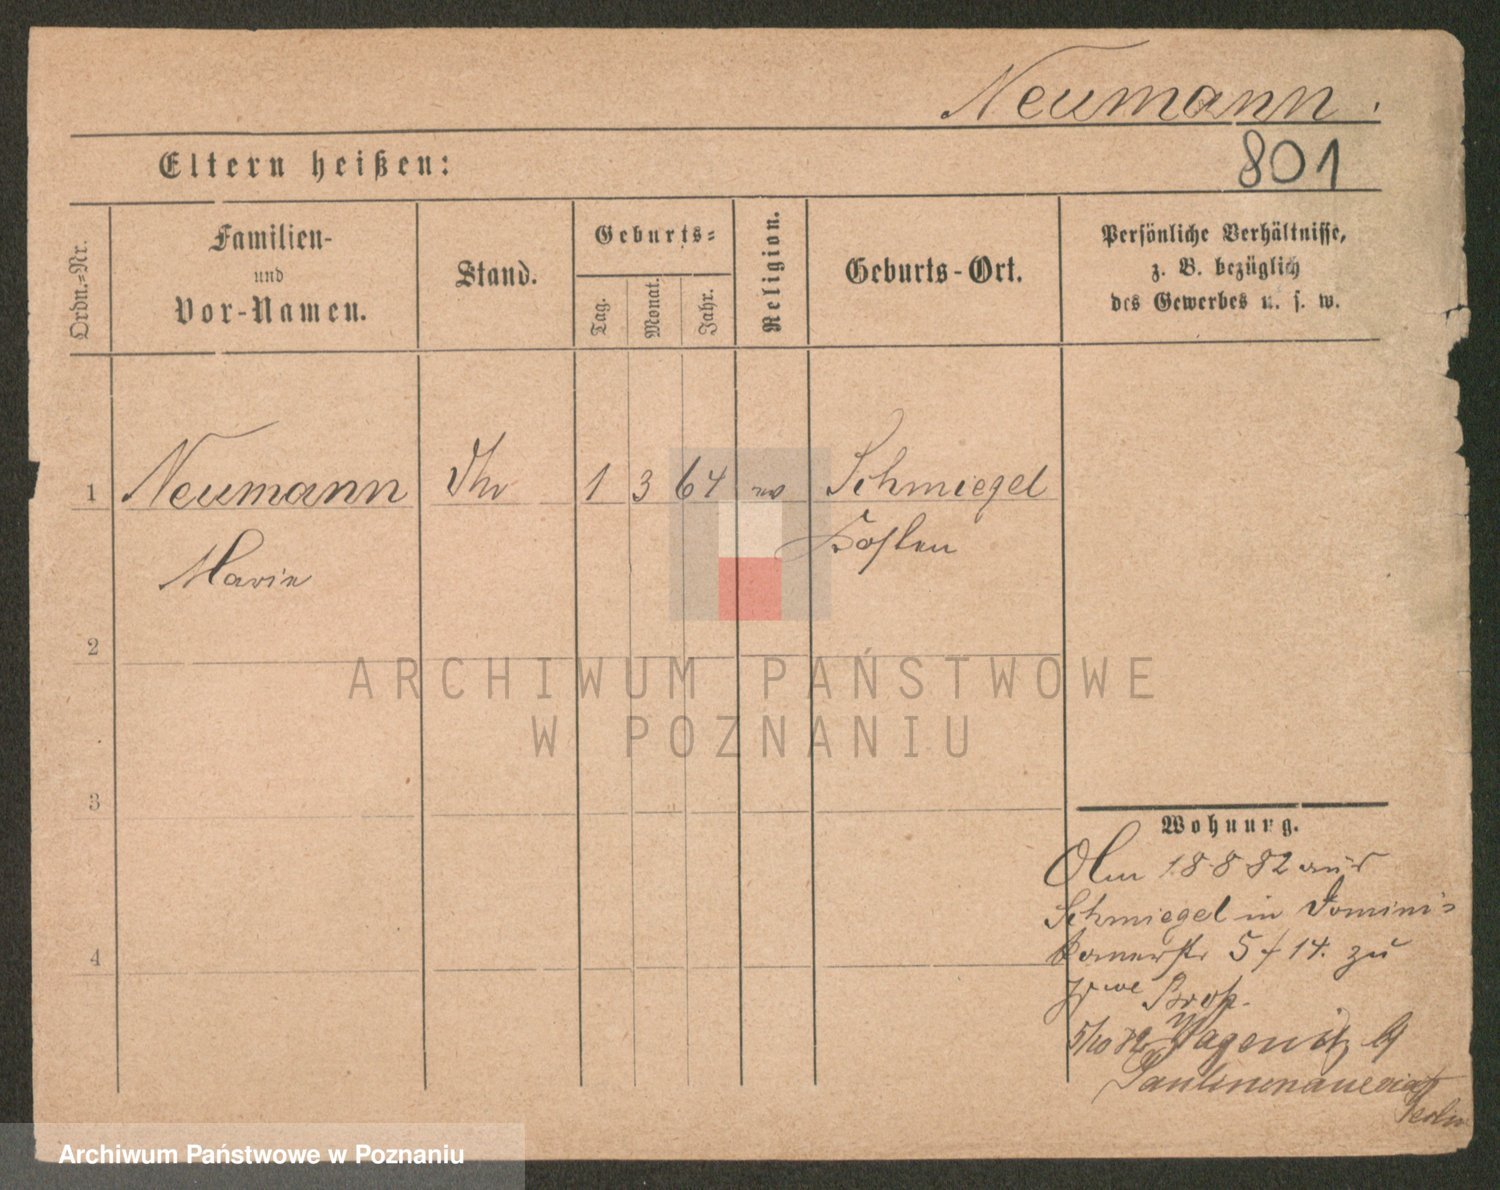 Neumann.
801
Eltern heißen:
Ordn.-Nr.
Familien-
und
Vor-Namen.
Stand.
Geburts-
Tag.
Monat.
Jahr.
Religion.
Geburts-Ort.
Persönliche Verhältnisse,
z. B. bezüglich
des Gewerbes u. s. w.
1 Neumann 1 3 64 Schmiegel
Marie Kosten
2
3
4
ARCHIWUM PAŃSTWOWE
W POZNANIU
Wohnung.
18 8 82 aus
Schmiegel in Domini-
kanerstr 5 14. zu
5/10 82
Archiwum Państwowe w Poznaniu